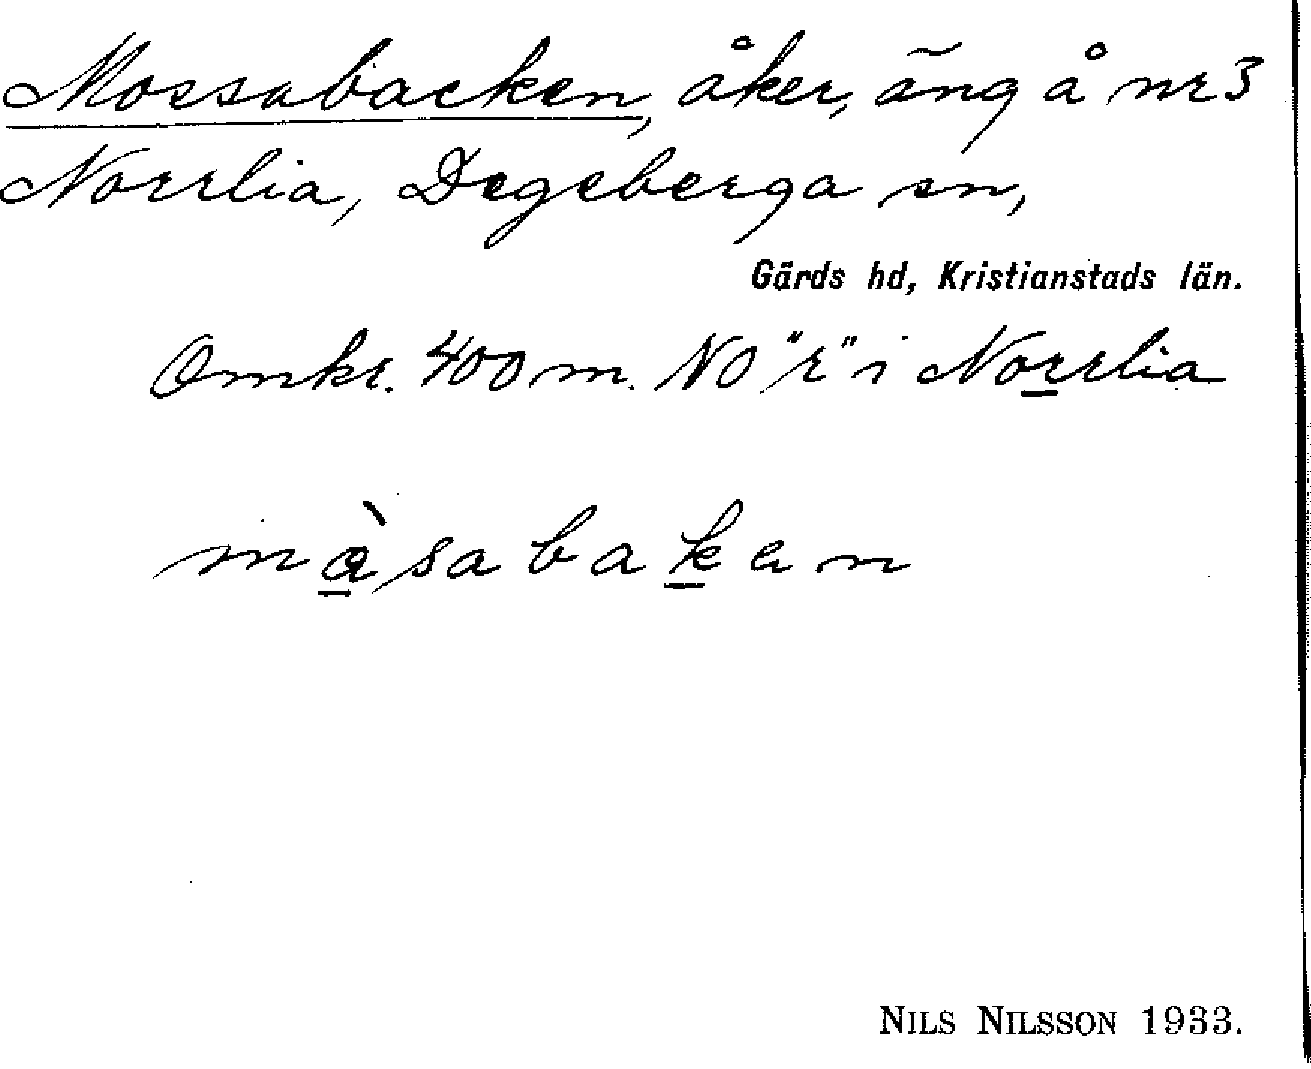 Mossabacken, åker, äng å nr 3
Norrlia, Degeberga sn,
Gärds hd, Kristianstads län.
Omkr. 400 m. NO "r" i Norrlia
màsabaken
NILS NILSSON 1933.